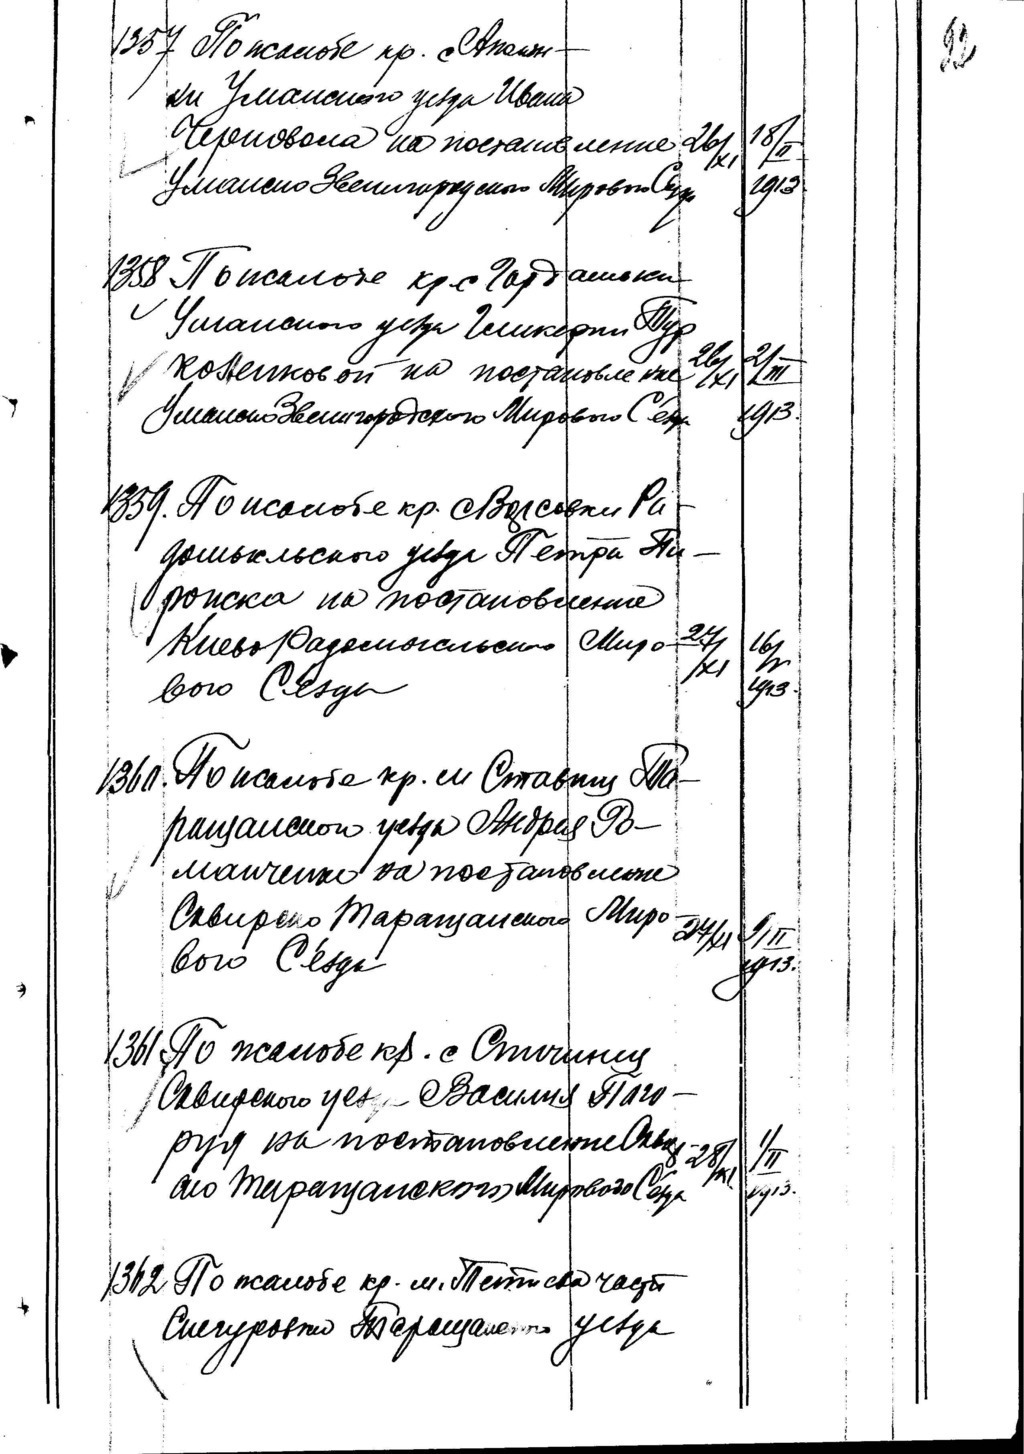 92
1357 По жалобе кр. с
ки Уманского уезда Ивана
Черновола на постановление 26/XI 18/II
Умано Звенигородского Мирового Съезда 1913
1358 По жалобе кр. с Гордашовки
Уманского уезда Гликерии Тур
ковой на постановление 26/XI 2/III
Умано Звенигородского Мирового Съезда 1913.
1359. По жалобе кр. с Ворсовки Ра-
домысльского уезда Петра Пи-
на постановление
Киево Радомысльского Миро- 27/XI 16/V
вого Съезда 1913.
1360. По жалобе кр. м Ставищ Та-
ращанского уезда Андрея Ро-
манченко на постановление
Сквирско Таращанского Миро- 27/XI 9/II
вого Съезда 1913.
1361 По жалобе кр. с
Сквирского уезда Василия
на постановление Сквир- 28/XI 1/II
ско Таращанского Мирового Съезда 1913.
1362 По жалобе кр. м. части
Снегуровки Таращанского уезда